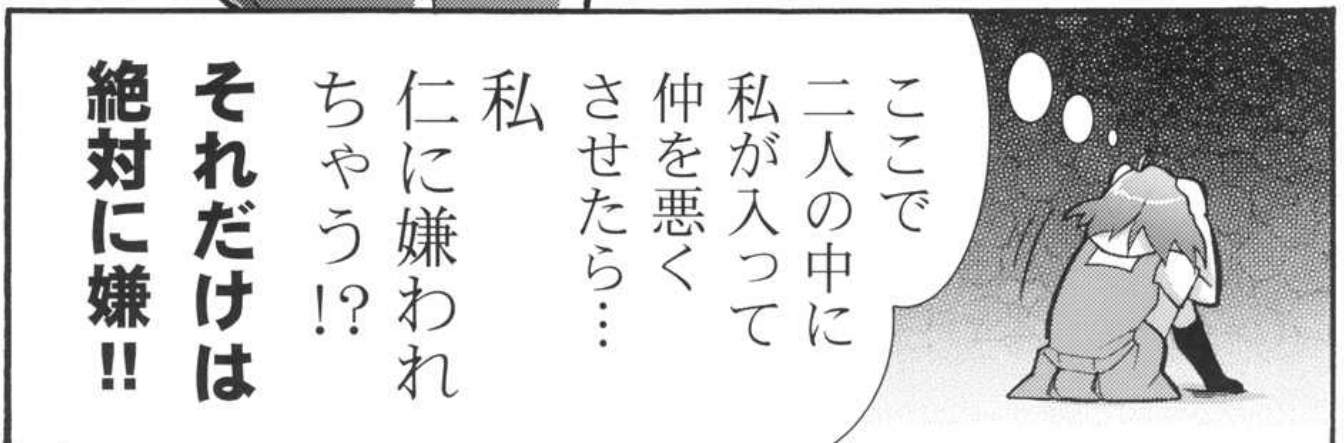 ここで
二人の中に
私が入って
仲を悪く
させたら…
私
仁に嫌われ
ちゃう!?
それだけは
絶対に嫌!!